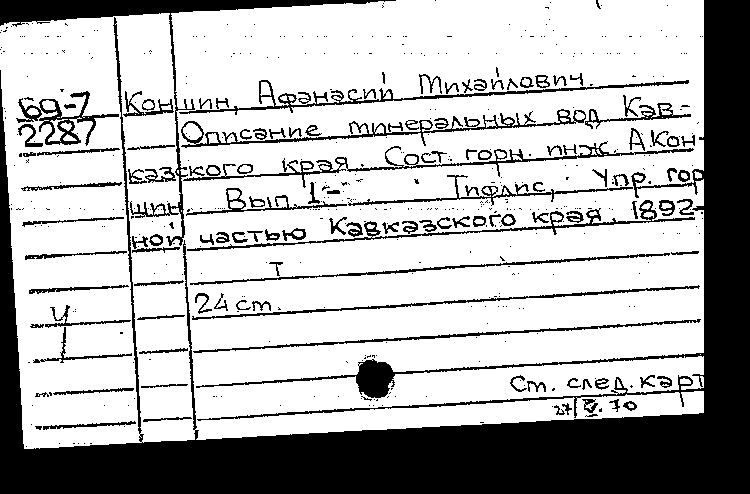 69-7
2287
Коншин, Афанасий Михайлович.
Описание минеральных вод Кав-
казского края. Сост. горн. инж. А Кон-
шин. Вып. 1- Тифлис, Упр. гор
ной частью Кавказского края. 1892-
т
24 см.
Ст. след. карт
27/V. 70